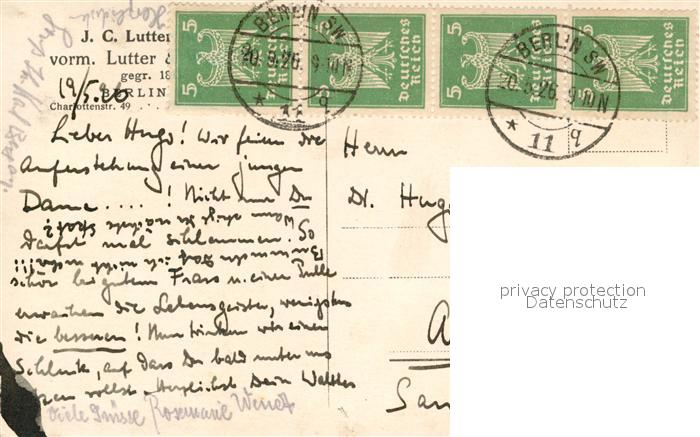 J. C. Lutter
vorm. Lutter &
gegr. 18
BERLIN
Charlottenstr. 49
19/5.26
5 Deutsches Reich
5 Deutsches Reich
5 Deutsches Reich
5 Deutsches Reich
BERLIN SW
20.5.26. 9-10 N
* 11 q
BERLIN SW
20.5.26. 9-10 N
* 11 q
Lieber Hugo! Wir feiern die
Auferstehung einer jungen
Dame....! Nicht nur Du
darfst mal schlemmen. So
schön bei gutem Frass u. einer Pulle
erwachen die Lebensgeister, wenigstens
die besseren! Nun trinken wir einen
Schluck, auf dass Du bald unter uns
sollst. Herzlichst Dein Walther
Viele Grüsse Rosemarie Wendt
Herrn
Dr. Hug
San
privacy protection
Datenschutz